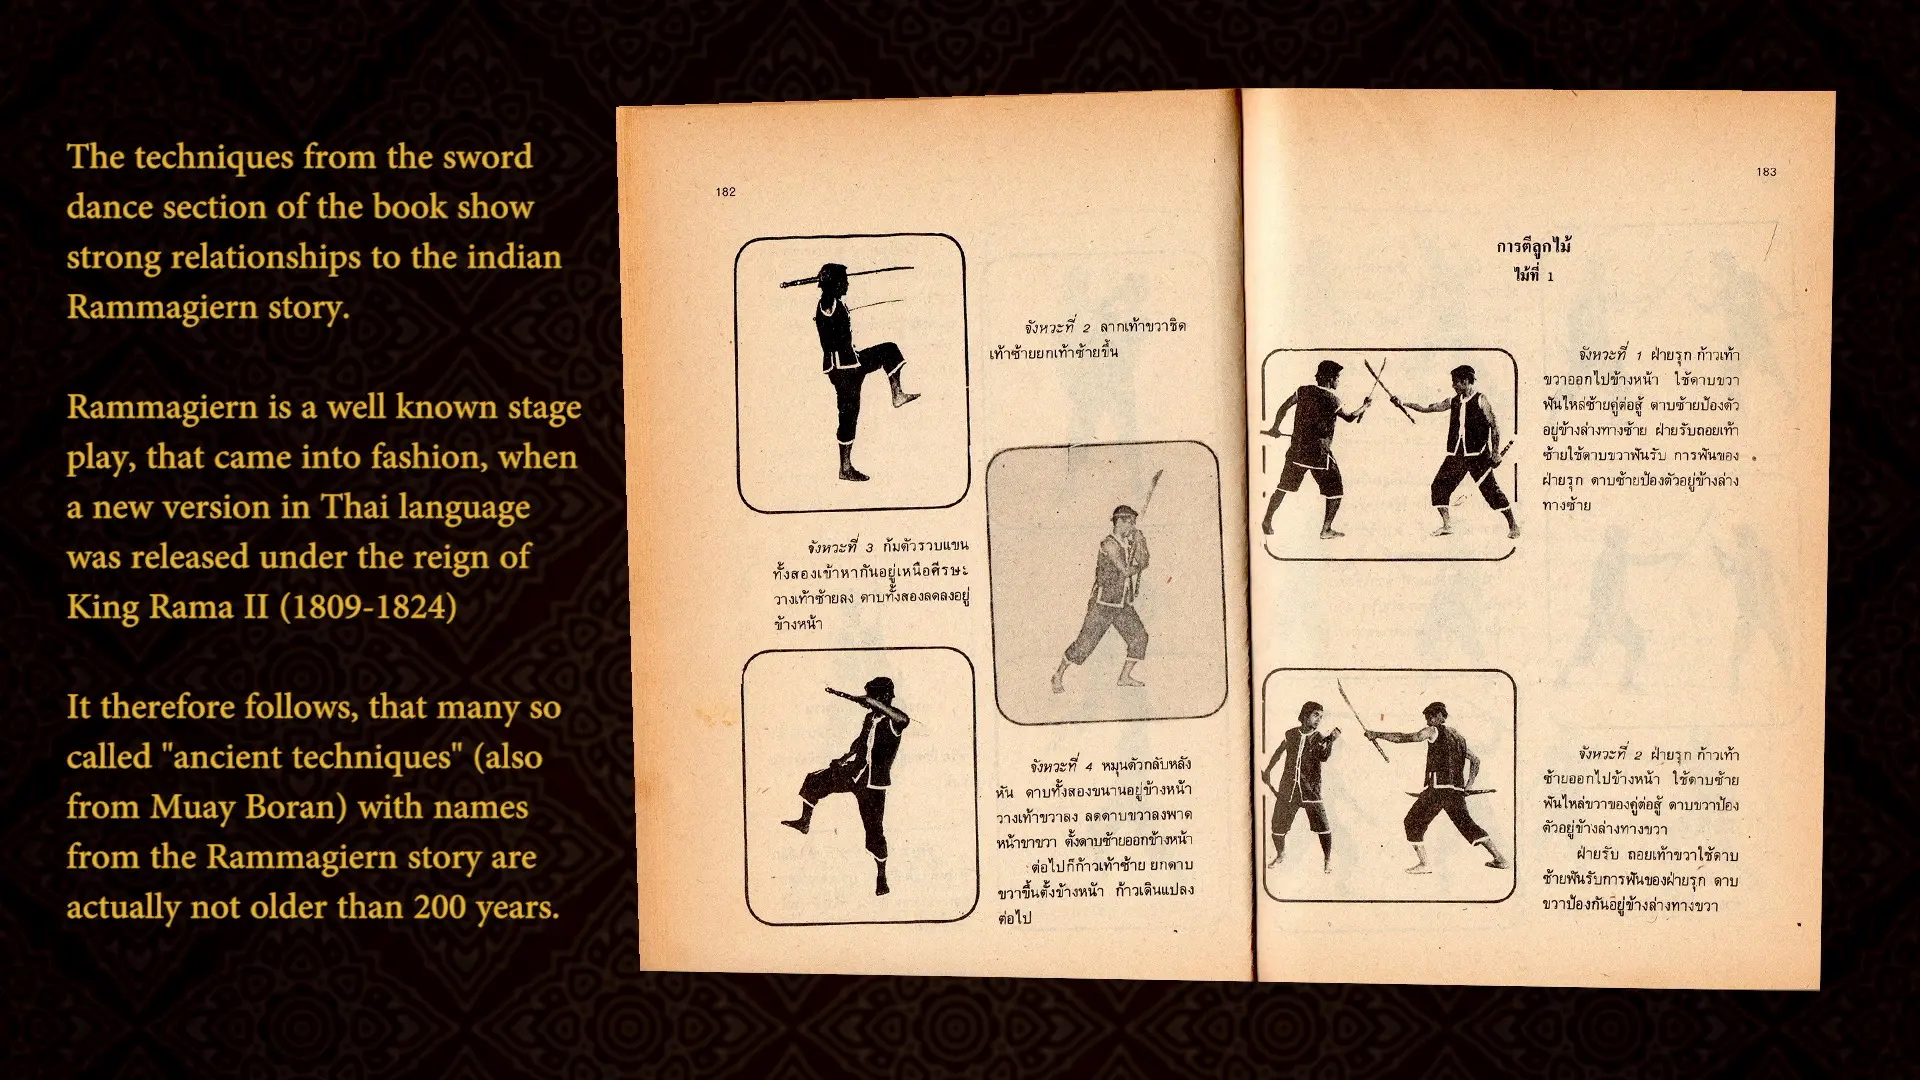 The techniques from the sword
dance section of the book show
strong relationships to the indian
Rammagiern story.
Rammagiern is a well known stage
play, that came into fashion, when
a new version in Thai language
was released under the reign of
King Rama II (1809-1824)
It therefore follows, that many so
called "ancient techniques" (also
from Muay Boran) with names
from the Rammagiern story are
actually not older than 200 years.
182
จังหวะที่ 2 ลากเท้าขวาชิด
เท้าซ้ายยกเท้าซ้ายขึ้น
จังหวะที่ 3 ก้มตัวรวบแขน
ทั้งสองเข้าหากันอยู่เหนือศีรษะ
วางเท้าซ้ายลง ดาบทั้งสองลดลงอยู่
ข้างหน้า
จังหวะที่ 4 หมุนตัวกลับหลัง
หัน ดาบทั้งสองขนานอยู่ข้างหน้า
วางเท้าขวาลง ลดดาบขวาลงพาด
หน้าขาขวา ตั้งดาบซ้ายออกข้างหน้า
ต่อไปก็ก้าวเท้าซ้าย ยกดาบ
ขวาขึ้นตั้งข้างหน้า ก้าวเดินแปลง
ต่อไป
183
การตีลูกไม้
ไม้ที่ 1
จังหวะที่ 1 ฝ่ายรุก ก้าวเท้า
ขวาออกไปข้างหน้า ใช้ดาบขวา
ฟันไหล่ซ้ายคู่ต่อสู้ ดาบซ้ายป้องตัว
อยู่ข้างล่างทางซ้าย ฝ่ายรับถอยเท้า
ซ้ายใช้ดาบขวาฟันรับ การฟันของ
ฝ่ายรุก ดาบซ้ายป้องตัวอยู่ข้างล่าง
ทางซ้าย
จังหวะที่ 2 ฝ่ายรุก ก้าวเท้า
ซ้ายออกไปข้างหน้า ใช้ดาบซ้าย
ฟันไหล่ขวาของคู่ต่อสู้ ดาบขวาป้อง
ตัวอยู่ข้างล่างทางขวา
ฝ่ายรับ ถอยเท้าขวาใช้ดาบ
ซ้ายฟันรับการฟันของฝ่ายรุก ดาบ
ขวาป้องกันอยู่ข้างล่างทางขวา